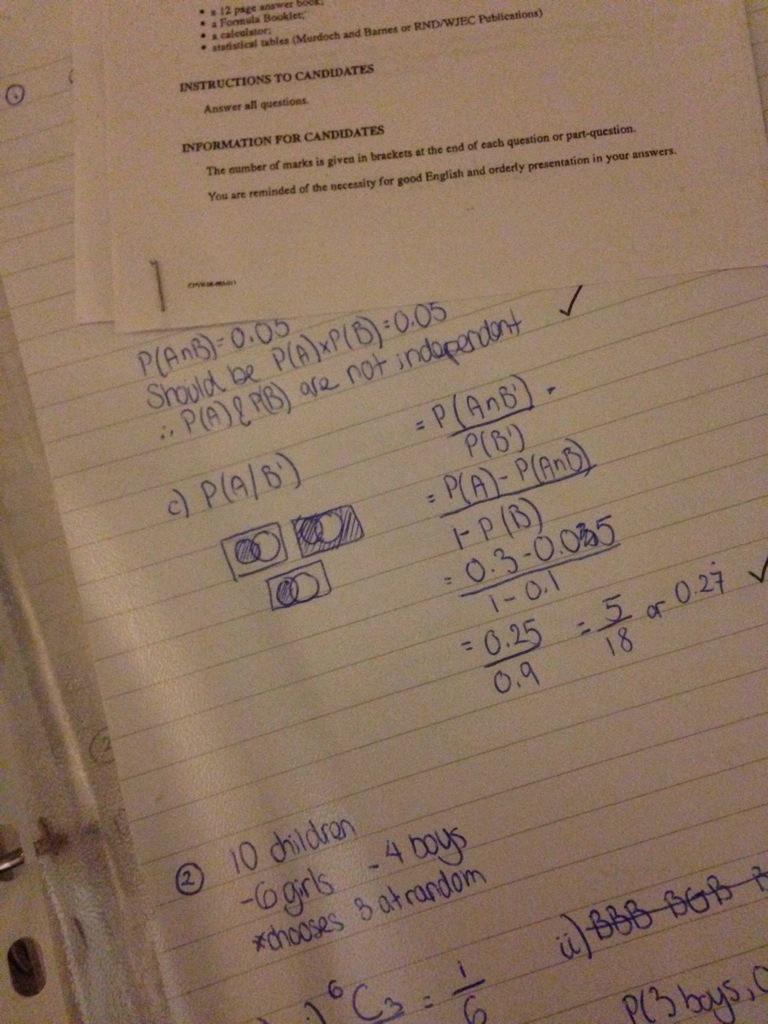 • a 12 page answer book;
• a Formula Booklet;
• a calculator;
• statistical tables (Murdoch and Barnes or RND/WJEC Publications)
INSTRUCTIONS TO CANDIDATES
Answer all questions.
INFORMATION FOR CANDIDATES
The number of marks is given in brackets at the end of each question or part-question.
You are reminded of the necessity for good English and orderly presentation in your answers.
P(A∩B)=0.05
Should be P(A)×P(B)=0.05 ✓
∴ P(A) & P(B) are not independent
c) P(A/B')
= P(A∩B')
P(B')
= P(A) - P(A∩B)
1 - P(B)
= 0.3 - 0.05
1 - 0.1
= 0.25 = 5 or 0.27̇ ✓
0.9 18
② 10 children
-6 girls -4 boys
*chooses 3 at random
i) ⁶C₃ = 1
6
ii) BBB BGB
P(3 boys,